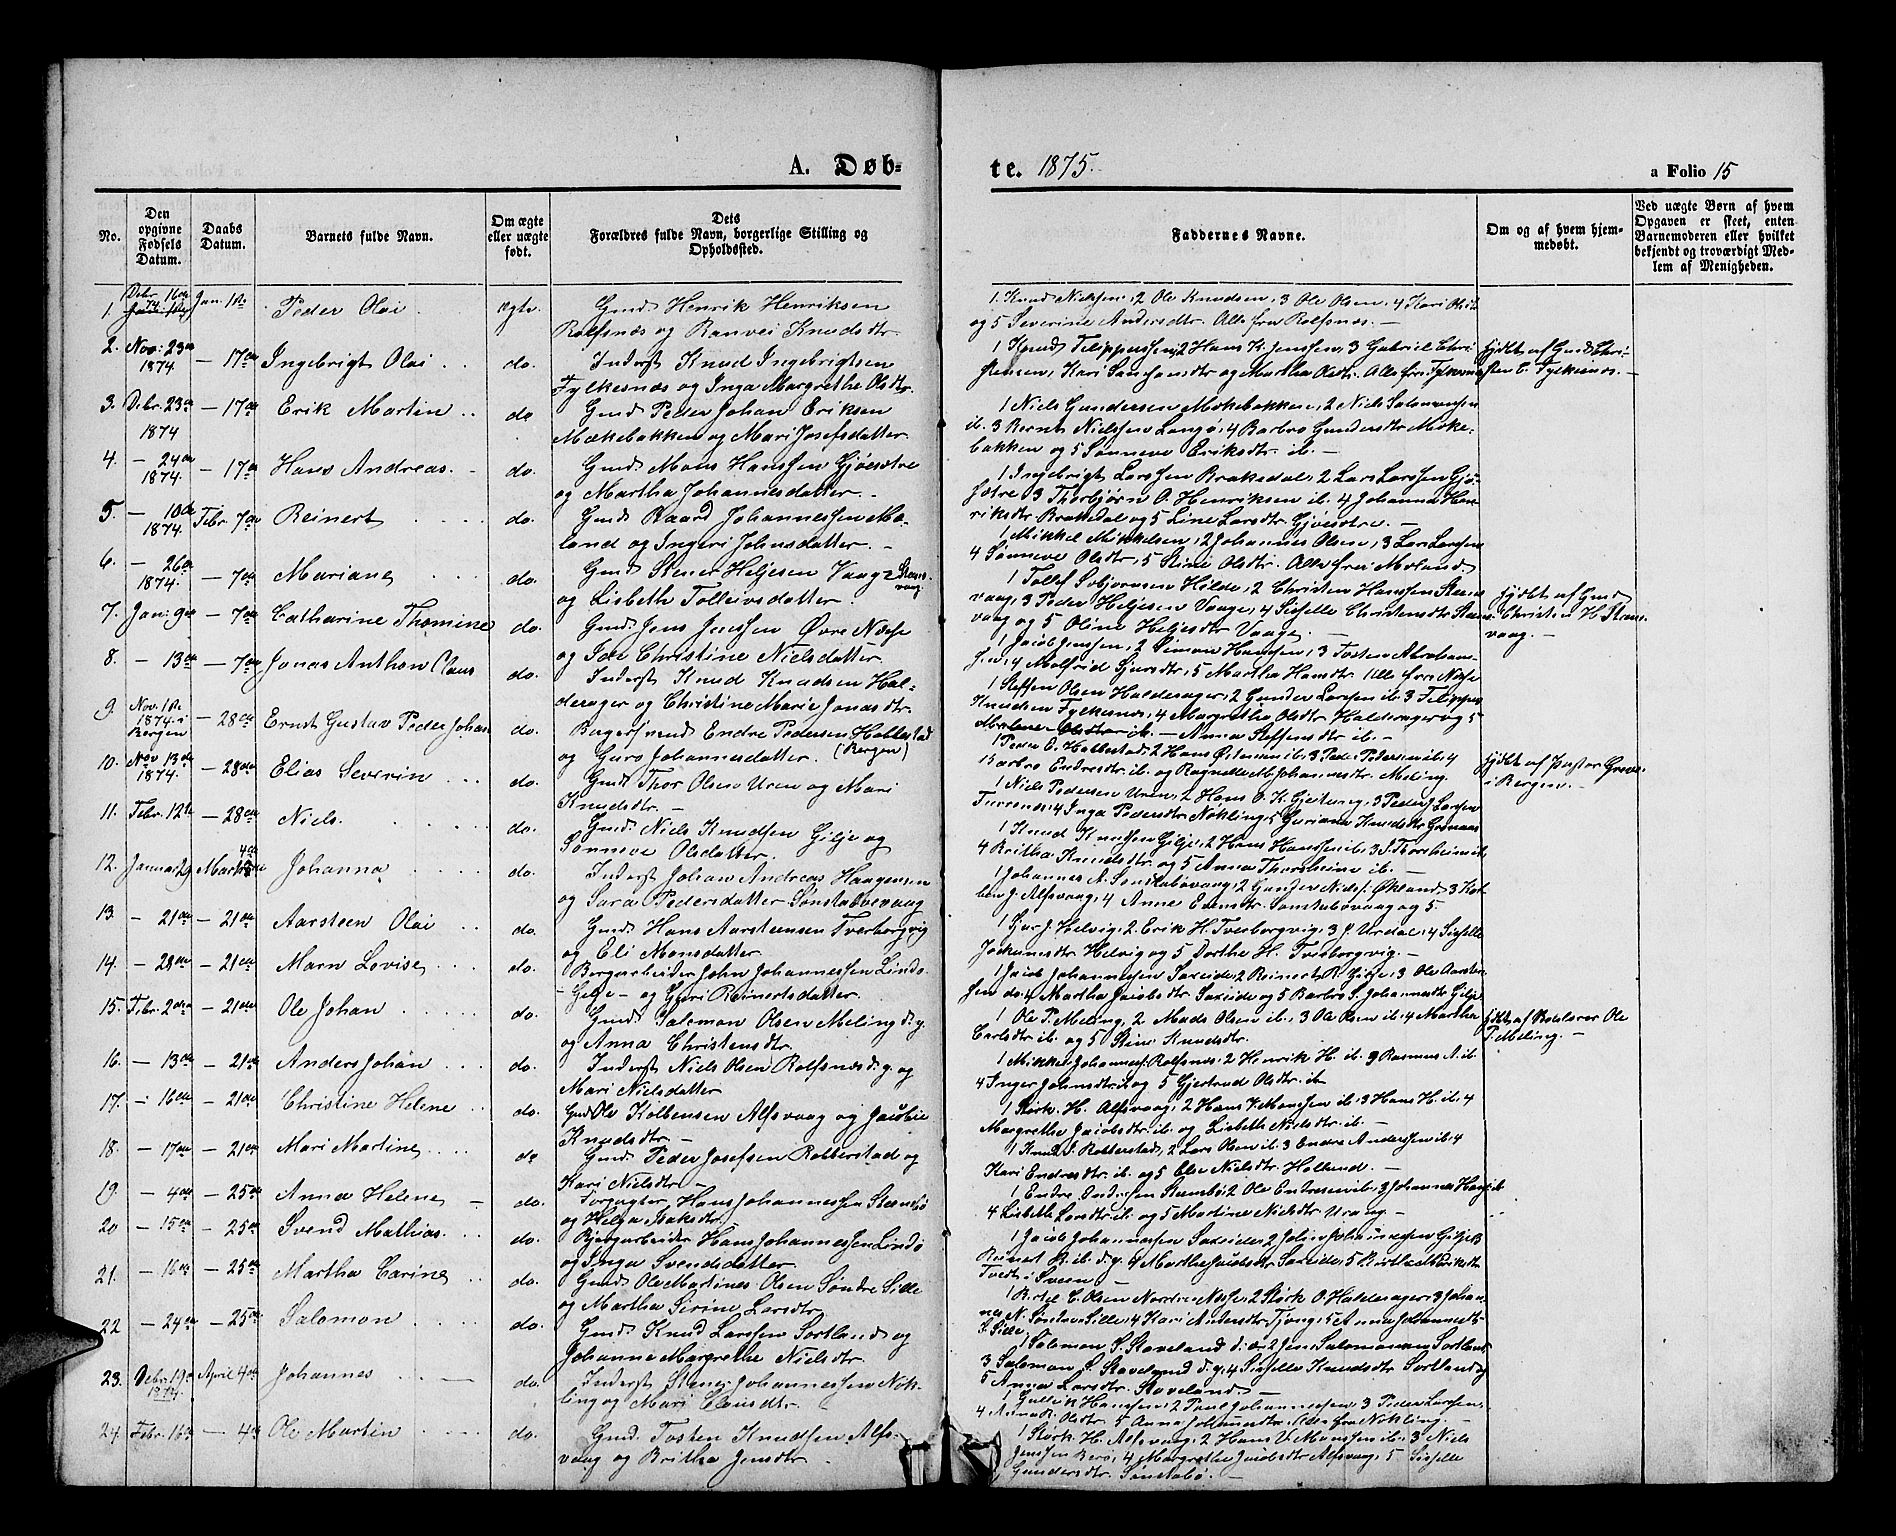 A. Døb=
te. 1875.
a Folio 15
No.
Den opgivne Fødsels Datum.
Daabs Datum.
Barnets fulde Navn.
Om ægte eller uægte født.
Dets Forældres fulde Navn, borgerlige Stilling og Opholdssted.
Faddernes Navne.
Om og af hvem hjemmedøbt.
Ved uægte Børn af hvem Opgaven er skeet, enten Barnemoderen eller hvilket bekjendt og troværdigt Medlem af Menigheden.
1. Debr. 16de 74. Jan. 1ste Peder Olai ægte. Gmd. Henrik Henriksen
Rolfsnæs og Ranvei Knudsdtr.
1 Knud Nielssen, 2 Ole Knudsen, 3 Ole Olsen, 4 Kari Olsdt.
og 5 Severine Andersdtr. Alle fra Rolfsnæs. —
2. Nov. 23de 1874 — 17de Ingebrigt Olai do. Inderst Knud Ingebrigtsen
Fylkesnæs og Inga Margrethe Olsdtr.
1 Knud Filippussen, 2 Hans K. Jenssen, 3 Gabriel Chri-
stensen, Kari og Martha Olsdtr. Alle fra Fylkesnæs
hjdbt af Gmd Chri-
sten C. Fylkesnæs. —
3. Debr. 23de 1874 — 17de Erik Martin do Gmd Peder Johan Eriksen
Mækebakken og Mari Josefsdatter.
1 Niels Gundersen Mækebakken, 2 Niels Salomonsen
ib. 3 Bernt Nielssen Langø, 4 Barbro Gundersdtr Mæke-
bakken og 5 Sønneve Eriksdtr. ib. —
4. — 24de 1874. — 17de Hans Andreas. do. Gmd. Mons Hanssen Gjøesætre
og Martha Johannesdatter. —
1 Ingebrigt Larssen Brakedal, 2 Lars Larssen Gjø-
sætre 3 Thorbjørn O. Henriksen ib. 4 Johanna Hen-
riksdtr Brakedal og 5 Line Larsdtr. Gjøesætre. —
5. — 10de 1874 Febr. 7de Reinert do. Gmd. Baard Johannessen Mø-
land og Ingeri Johnsdatter. —
1 Mikkel Mikkelsen, 2 Johannes Olsen, 3 Lars Larssen
4 Sønneve Olsdtr, 5 Stine Olsdtr. Alle fra Møland.
6. — 26de 1874. — 7de Mariane do. Gmd Stener Heljesen Vaage
og Lisbeth Tolleivsdatter.
1 Tollef Hilde, 2 Christen Hanssen
vaag, 3 Peder Heljesen Vaage, 4 Sisselle Christensdtr
vaag og 5 Oline Heljesdtr Vaage. —
hjdbt af Gmd
Christen H.
vaag. —
7. Jan. 9de — 7de Catharine Thomine do. Gmd. Jens Jenssen Øvre Næsse
og Christine Nielsdatter.
1 Jacob Jenssen, 2 Simon Hanssen, 3 Tosten Abraham-
sen, 4 Malfrid Sjursdtr, 5 Martha Hansdtr. Alle fra Næsse
8. — 13de — 7de Jonas Anthon Claus do. Inderst Knud Knudsen Hal-
derager og Christine Marie Jonasdtr.
1 Steffen Olsen Halderager, 2 Gunder Larssen ib. 3 Filippus
Knudsen Fylkesnæs, 4 Margretha Olsdtr. Halderager og 5
Anna Steffensdtr ib. —
9. Nov. 1ste 1874 i Bergen — 28de Ernst Gustav Peder Johan do. Endre Pedersen Hallestad
(Bergen) og Guro Johannesdatter.
1 Peder E. Hallestad, 2 Hans Østensen ib. 3 Peder Pedersen ib. 4
Barbro Endresdtr. ib. og Ragnilde M. Johannesdtr. Meling
hjdbt af Pastor
i Bergen. —
10. Nov 13de 1874. — 28de Elias Severin do. Gmd. Thor Olsen Uren og Mari
Knudsdtr. —
1 Niels Pedersen Uren, 2 Hans O. K. Gjeitung, 3 Peder J. Larssen
4 Inga Pedersdtr. Nøkling, 5 Guriane Knudsdtr
11. Febr. 12te — 28de Niels. do. Gmd. Niels Knudssen Gilje og
Sønneve Olsdatter.
1 Knud Knudssen Gilje, 2 Hans Hanssen ib. 3 J. Thorsheim ib.
4 Britha Knudsdtr. og 5 Anna Thorsheim ib. —
12. Januar 29 Marts 4de Johanna do. Inderst Johan Andreas Haagensen
og Sara Pedersdatter Sønstabøvaag
1 Johannes A. Sønstabøvaag, 2 Gunder Niels. Økland, 3 Kol-
ben J. Alfsvaag, 4 Anne Evensdtr. Sønstabøvaag og 5.
13 — 21de — 21de Aarsteen Olai do. Gmd. Hans Aarsteensen Tverborgvig
og Eli Monsdatter.
1 J. Helvig, 2 Erik H. Tverborgvig, 3 J. Urdal, 4 Sisselle
Helvig og 5 Dorthe H. Tverborgvig. —
14. — 28de — 21de Marn Lovise do. Bergarbeider John Johannessen Lindø
— Gilje — og Guri Reinertsdatter.
1 Jacob Johannessen Sæxeide, 2 Reinert R. Gilje, 3 Ole Aarsten-
sen do. 4 Martha Jacobsdtr. Sæxeide og 5 Barbro S. Johannesdtr Gilje
15. Febr. 2den — 21de Ole Johan do. Gmd. Salomon Olsen Meling d. y.
og Anna Christensdtr.
1 Ole P. Meling, 2 Mads Olsen ib. 3 Ole Olsen ib. 4 Martha
Carlsdtr ib. og 5 Stine Knudsdtr.
hjdbt af Ole
P. Meling. —
16. — 13de — 21de Anders Johan do. Inderst Niels Olsen Rolfsnæs d. y. og
Mari Nielsdatter
1 Mikkel Johanness. Rolfsnæs, 2 Henrik H. ib. 3 Rasmus A. ib.
4 Inger Johnsdtr. ib. og 5 Gjertrud Olsdtr. ib.
17. — 16de — 21de Christine Helene do. Gmd Ole Kolbensen Alfsvaag og
Knudsdtr. —
1 Størk. H. Alfsvaag, 2 Hans V. Monssen ib. 3 Hans H. ib. 4
Margrethe Jacobsdtr. ib. og Lisbeth Nielsdtr. ib.
18. — 17de — 21de Mari Martine do Gmd. Peder Josefsen Robberstad og
Kari Nielsdtr —
1 Knud J. Robberstad, 2 Lars Olsen ib. 3 Endre Anderssen ib. 4
Kari Endresdtr. ib. og 5 Nielsdtr. Hollund. —
19. — 4de — 25de Anna Helene — do. Forpagter Hans Johannessen Stensbø
og Helga Isaksdtr.
1 Endre Stensbø, 2 Ole Endresen ib. 3 Johannes ib.
4 Lisbeth Larsdtr. ib. og 5 Martine Nielsdtr Urang. —
20 — 15de — 25de Svend Mathias. do. Bjergarbeider Hans Johannessen Lindø
og Inga Svendsdatter.
1 Jacob Johannessen Sæxeide, 2 John Johannessen Gilje, 3
Reinert R. ib. d. y. 4 Marthe Jacobsdtr. Sæxeide, 5
Tvedt i Sveen —
21. — 16de — 25de Martha Carine do. Gmd. Ole Martines Olsen Søndre Sille
og Martha Sirine Larsdtr.
1 Bertel C. Olsen Nordre Næsse, 2 Størk O. Halderager, 3 Johan-
nes N. Søndre Sille, 4 Kari Andersdtr. Tjong, 5 Anna Johannesdtr
S. Sille,
22 — 24de — 25de Salomon do. Gmd. Knud Larssen Sortland og
Johanne Margrethe Nielsdtr.
1 Salomon S. Staveland d. æ. 2 Jens Salomonsen Sortland
3 Salomon S. Staveland d. y. 4 Sisselle Knudsdtr Sortland og
5 Anna Larsdtr. Staveland. —
23. Debr. 19de 1874. April 4de Johannes — do. Inderst Stener Johannessen Nøk-
ling og Mari Clausdtr.
1 Gullik Hanssen, 2 Paul Johannessen, 3 Peder Larssen,
4 Anna B. Olsdtr. 5 Anna Johannesdtr. Alle fra Nøkling. —
24. Febr. 16de — 4de Ole Martin do. Gmd. Tosten Knudssen Alfs-
vaag og Britha Jensdtr.
1 Størk H. Alfsvaag, 2 Hans V. Monssen ib. 3 Niels
Jenssen Berø, 4 Margrethe Jacobsdtr Alfsvaag, 5 Sisselle
Gundersdtr. Sønstabø. —